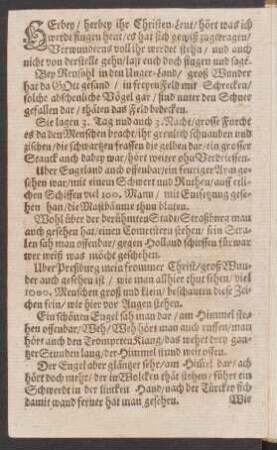 HErbey / herbey ihr Christen-Leut / hört was ich
werde singen heut / es hat sich gewiß zugetragen /
Verwunderns voll ihr werdet stehn / und auch
nicht von der stelle gehn / last euch doch singen und sagē.
Bey Neusohl in den Unger-Land / groß Wunder
hat da Gott gesand / in freyen Feld mit Schrecken /
solche abscheuliche Vögel gar / sind unter den Schnee
gefallen dar / thäten das Feld bedecken.
Sie lagen 3. Tag und auch 3. Nacht / grosse Furcht
es da den Menschen bracht / ihr greulich schnauben und
zischen / die schwartzen frassen die gelben dar / ein grosser
Stanck auch dabey war / hört weiter ohn Verdriessen.
Uber Engeland auch offenbar / ein feuriger Arm ge-
sehen war / mit einem Schwert und Ruthen / auff etli-
chen Schiffen viel 100. Mann / mit Entsetzung gese-
hen han / die Mastbäume thun bluten.
Wohl über der berühmten Stadt / Straßburg man
auch gesehen hat / einen Cometstern stehen / sein Stra-
len sah man offenbar / gegen Holland schiessen fürwar
wer weiß was möcht geschehen.
Uber Preßburg mein frommer Christ / groß Wun-
der auch gesehen ist / wie man allhier thut sehen / viel
1000. Menschen groß und klein / beschauten diese Zei-
chen fein / wie hier vor Augen stehen.
Ein schönen Engel sah man dar / am Himmel ste-
hen offenbar / Weh / Weh hört man auch ruffen / man
hört auch den Trompeten Klang / das wehrt drey gan-
tzer Stunden lang / der Himmel stund weit offen.
Der Engel aber gläntzet sehr / am Himēl dar / ach
hört doch mehr / der in Wolcken thät stehen / führt ein
Schwerdt in der lincken Hand / nach der Türckey sich
damit wand ferner hat man gesehen.
Wie